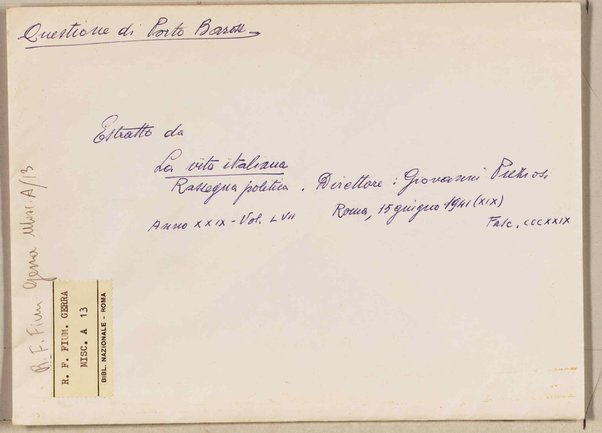 Questione di Porto Baross
Estratto da
La vita italiana
Rassegna politica. Direttore: Giovanni Preziosi
Roma, 15 giugno 1941 (XIX)
Anno XXIX - Vol. LVII
Fasc. CCCXXIX
R. F. Fium Gerra Misc. A/13
R. F. FIUM. GERRA
MISC. A 13
BIBL. NAZIONALE - ROMA